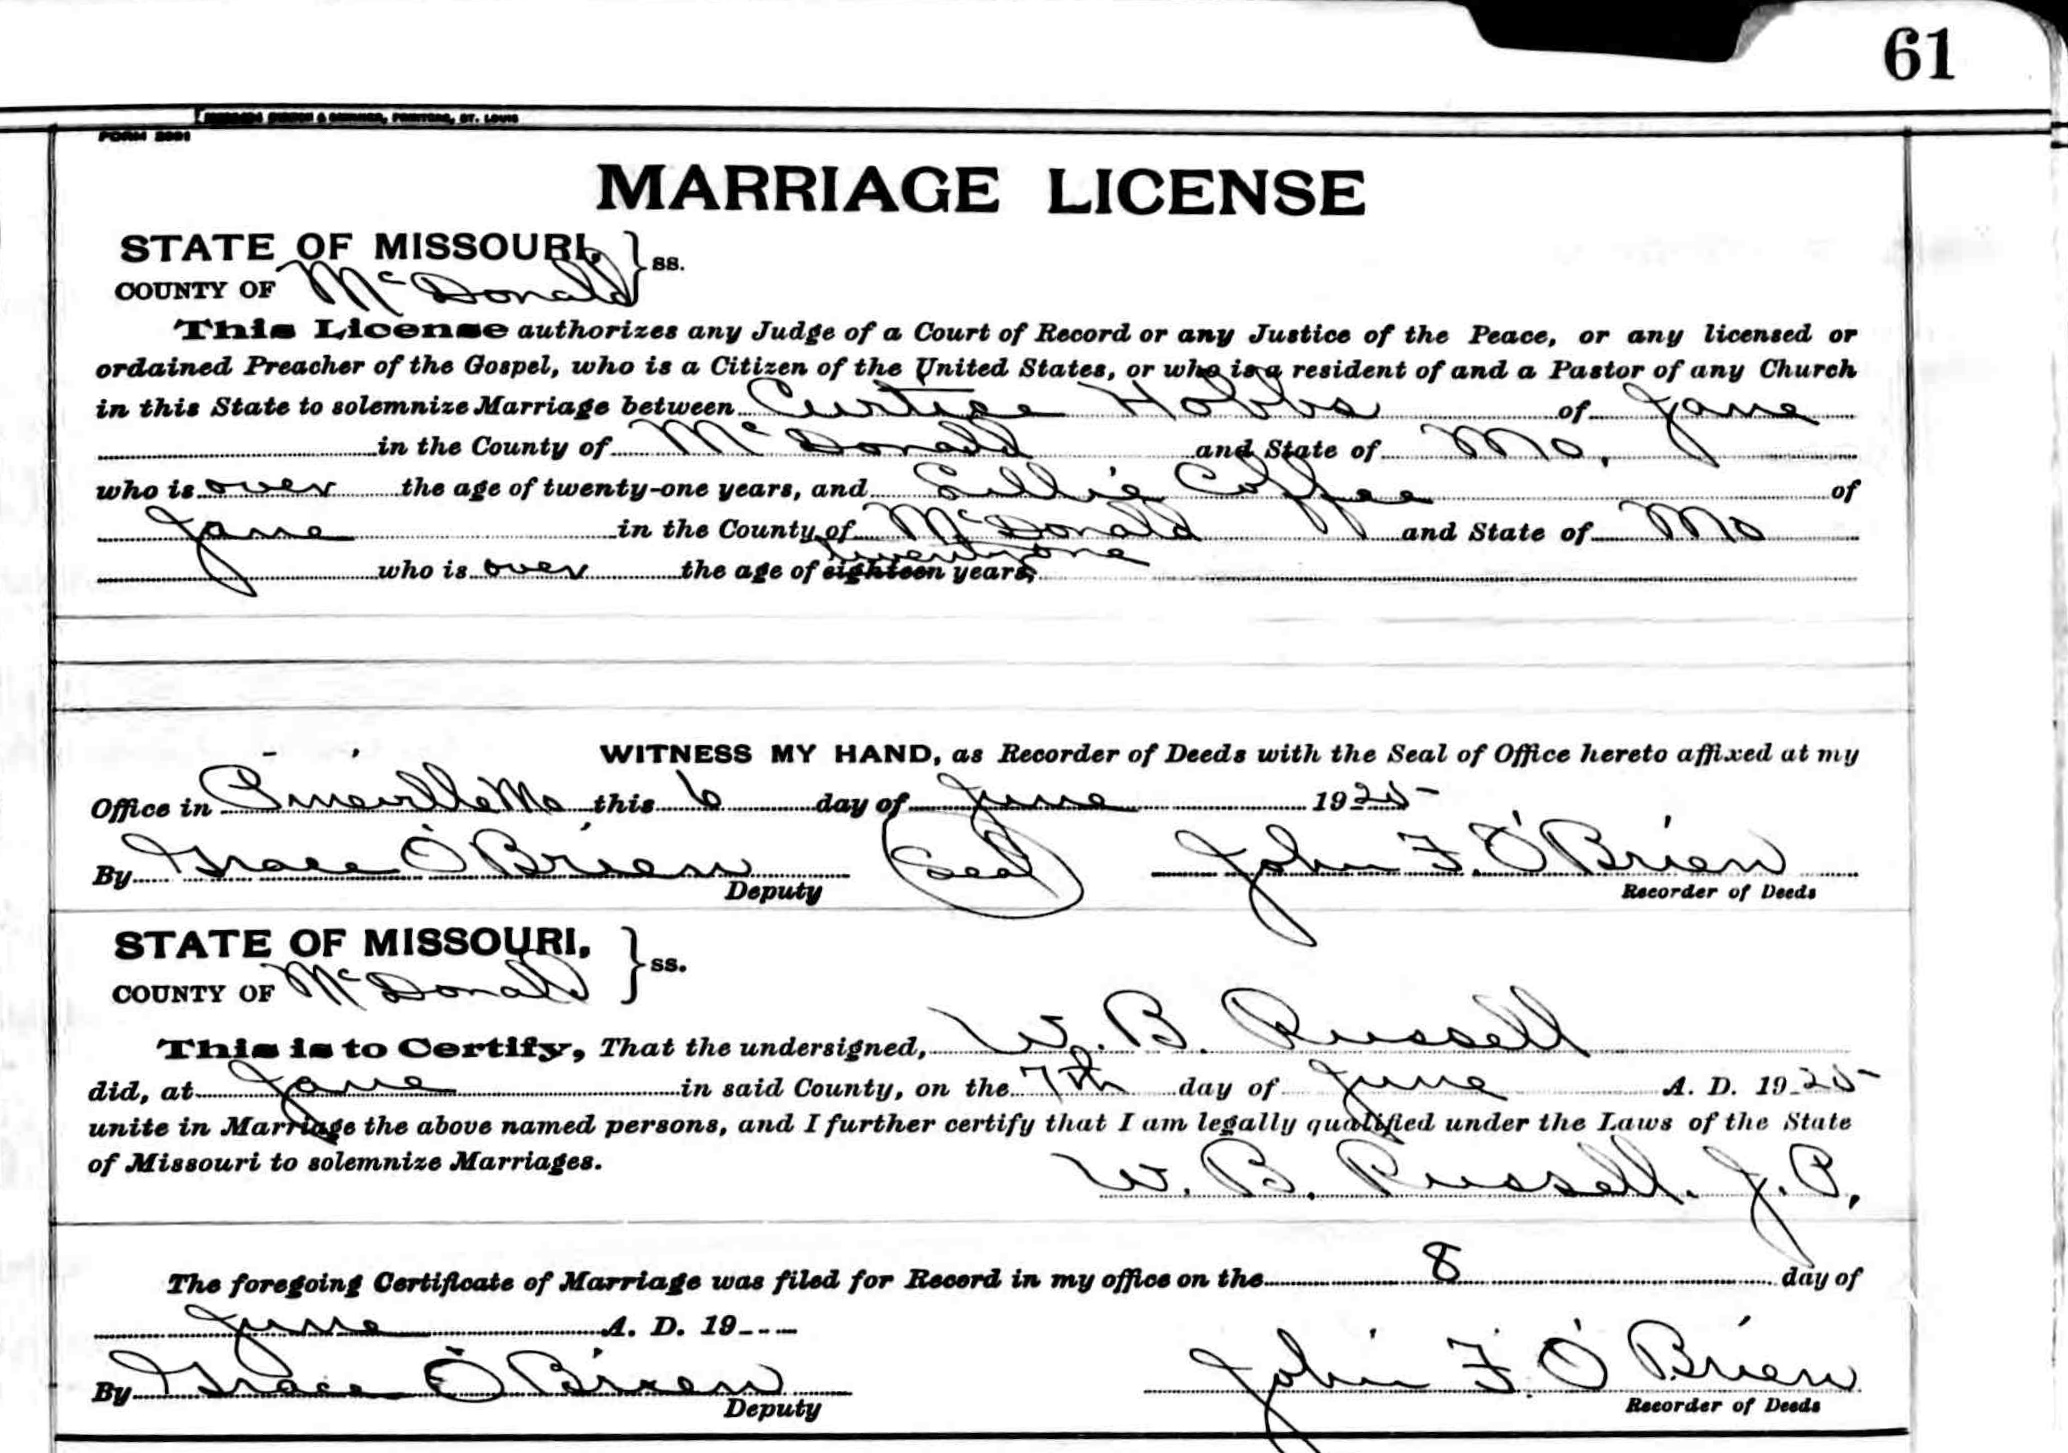 61
& , PRINTERS, ST. LOUIS
FORM 2991
MARRIAGE LICENSE
STATE OF MISSOURI, } ss.
COUNTY OF McDonald
This License authorizes any Judge of a Court of Record or any Justice of the Peace, or any licensed or
ordained Preacher of the Gospel, who is a Citizen of the United States, or who is a resident of and a Pastor of any Church
in this State to solemnize Marriage between Curtise Hobbs of Jane
in the County of McDonald and State of Mo.
who is over the age of twenty-one years, and Lillie Coffee of
Jane in the County of McDonald and State of Mo
twentyone
who is over the age of eighteen years,
WITNESS MY HAND, as Recorder of Deeds with the Seal of Office hereto affixed at my
Office in Pineville Mo this 6 day of June 1925
By Grace O'Brien (Seal) John F. O'Brien
Deputy Recorder of Deeds
STATE OF MISSOURI, } ss.
COUNTY OF McDonald
This is to Certify, That the undersigned, W. B. Russell
did, at Jane in said County, on the 7th day of June A. D. 1925
unite in Marriage the above named persons, and I further certify that I am legally qualified under the Laws of the State
of Missouri to solemnize Marriages.
W. B. Russell. J. P.
The foregoing Certificate of Marriage was filed for Record in my office on the 8 day of
June A. D. 19
By Grace O'Brien John F. O'Brien
Deputy Recorder of Deeds